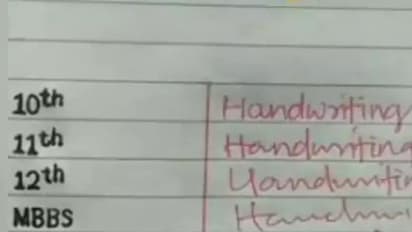 10th Handwriting
11th Handwriting
12th Handwriting
MBBS